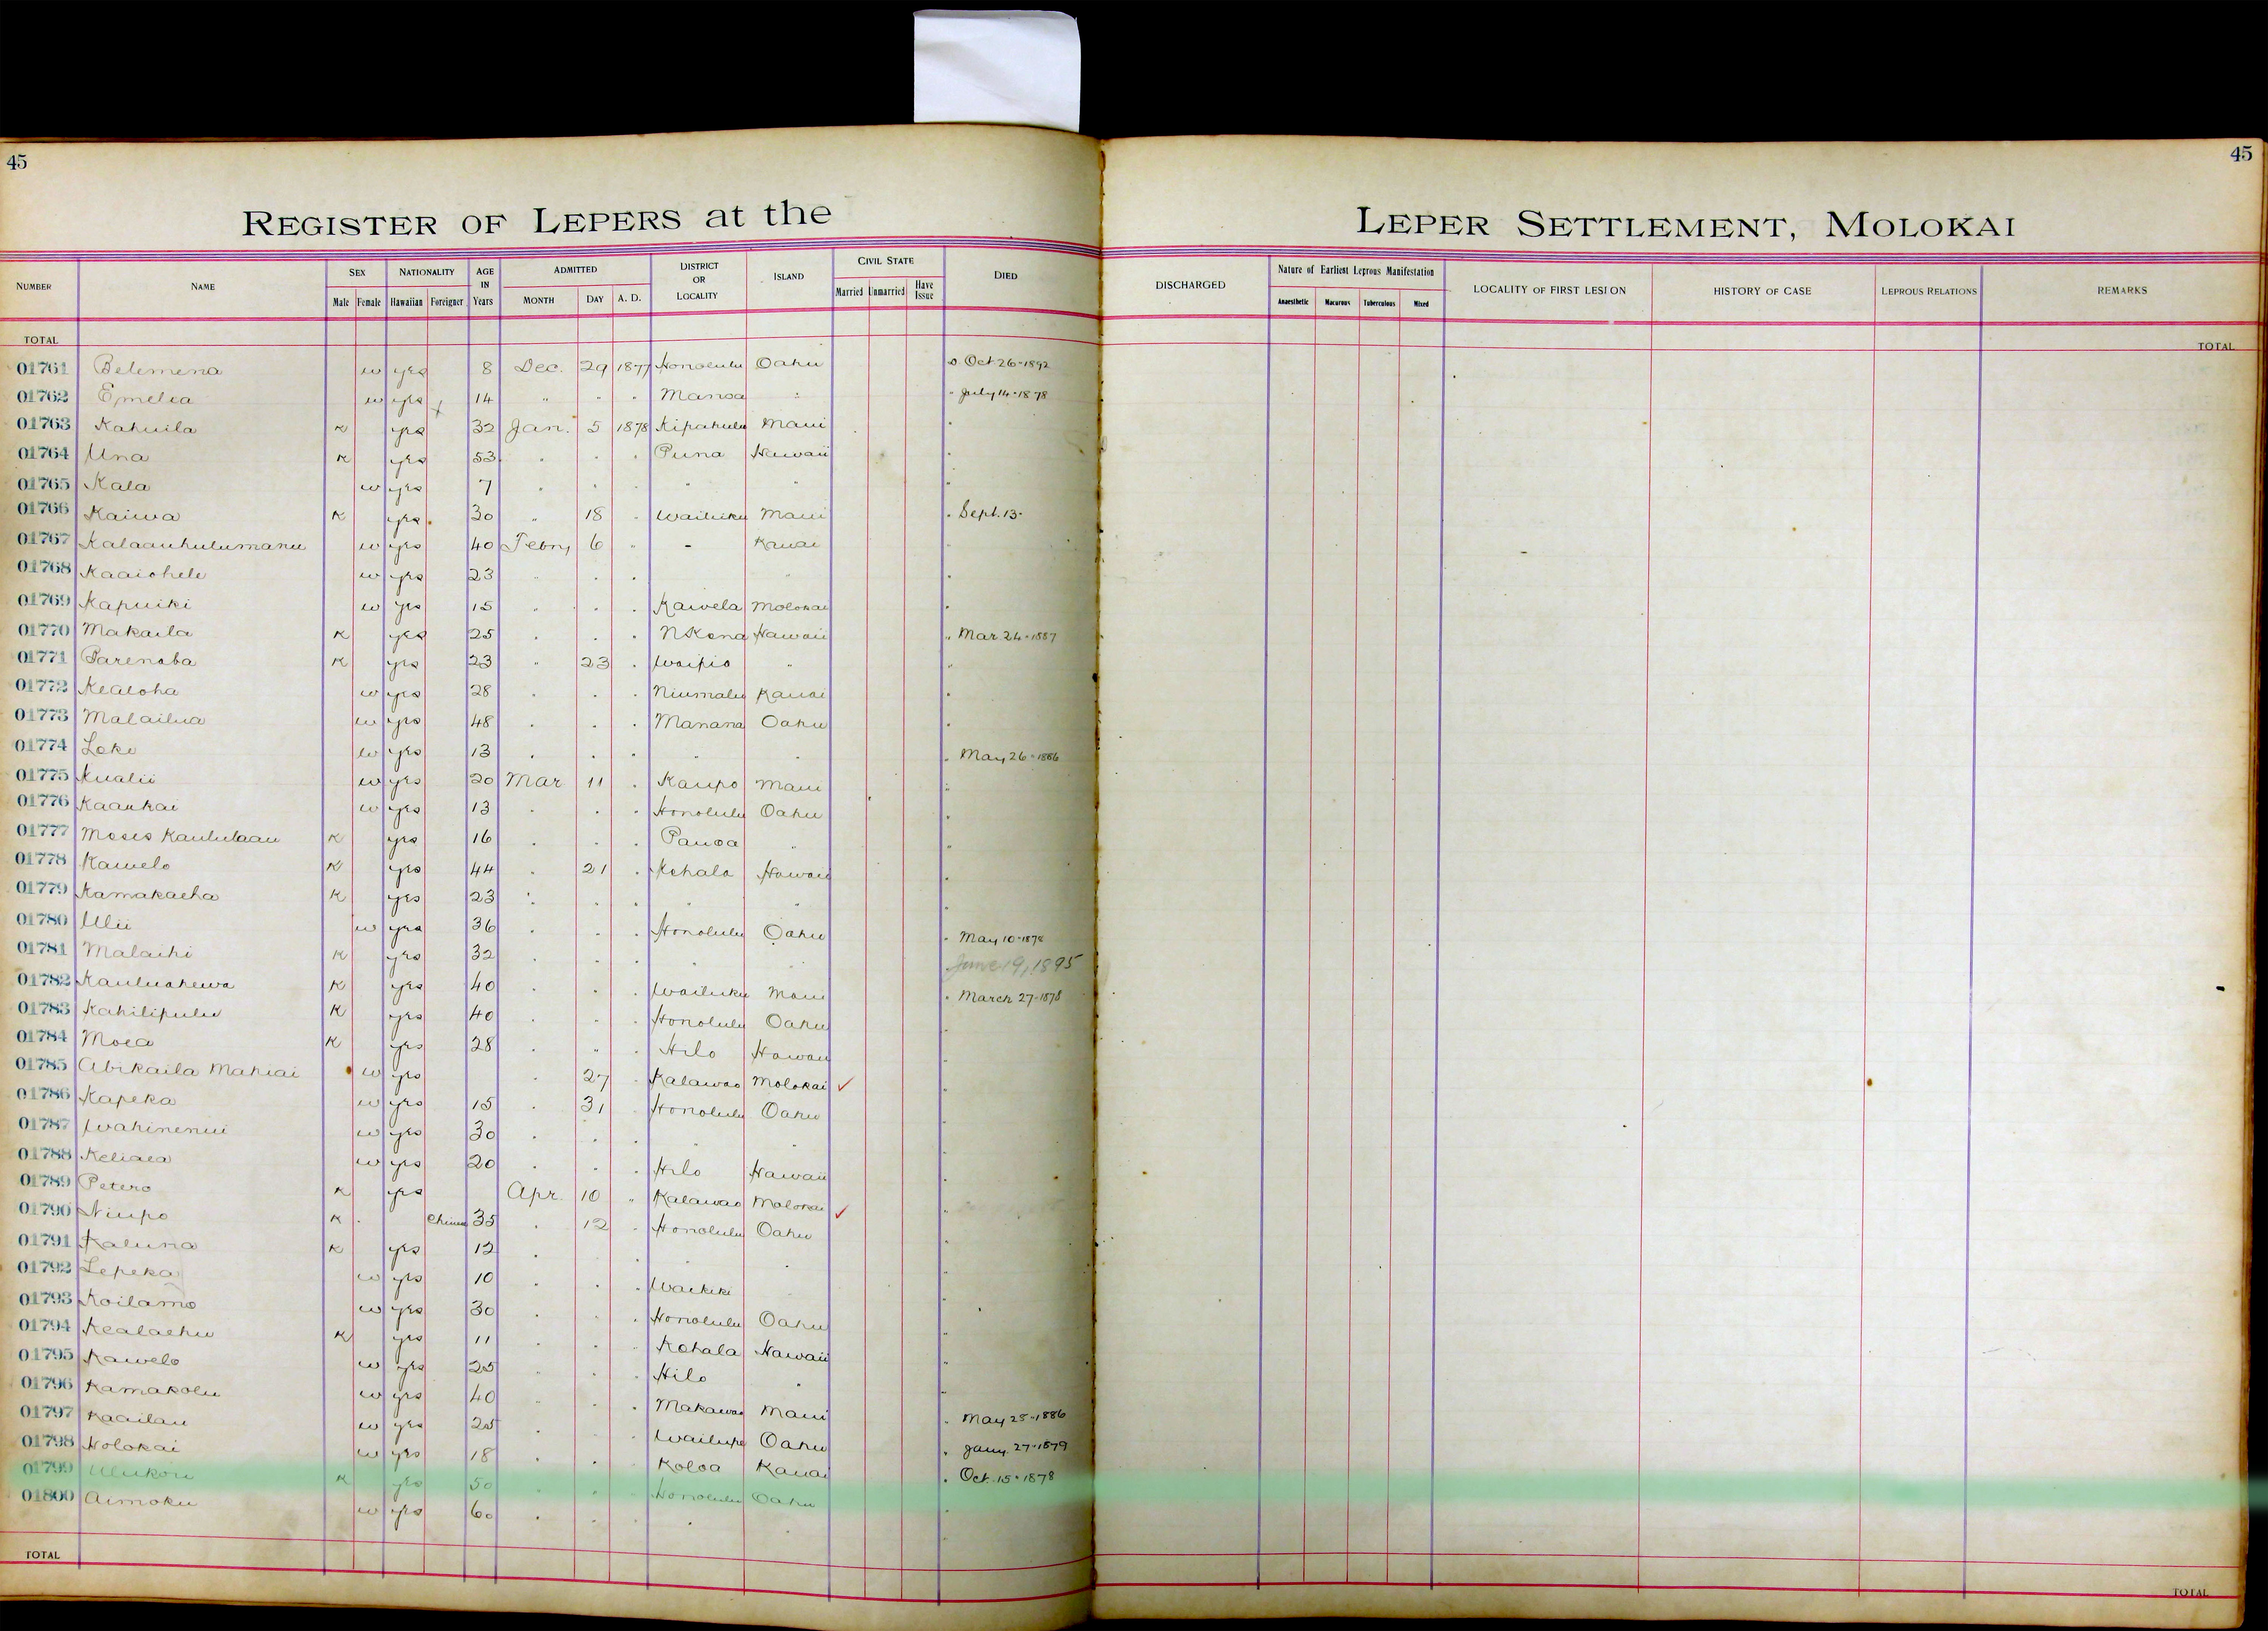 45
45
REGISTER OF LEPERS at the LEPER SETTLEMENT, MOLOKAI
NUMBER NAME SEX Male Female NATIONALITY Hawaiian Foreigner AGE IN Years ADMITTED MONTH DAY A. D. DISTRICT OR LOCALITY ISLAND CIVIL STATE Married Unmarried Have Issue DIED DISCHARGED Nature of Earliest Leprous Manifestation Anaesthetic Macurous Tuberculous Mixed LOCALITY OF FIRST LESION HISTORY OF CASE LEPROUS RELATIONS REMARKS
TOTAL TOTAL
01761 Belemena w yes 8 Dec. 29 1877 Honolulu Oahu Oct 26-1892
01762 Emelia w yes 14 " " " Manoa " " July 14-1878
01763 Kahuila K yes 32 Jan. 5 1878 Kipahulu Maui "
01764 Una K yes 53 " " " Puna Hawaii "
01765 Kala w yes 7 " " " " " "
01766 Kaiwa K yes 30 " 18 " Wailuku Maui " Sept. 13-
01767 Kalaauhulumanu w yes 40 Febry 6 " - Kauai "
01768 Kaaiohele w yes 23 " " " " "
01769 Kapuiki w yes 15 " " " Kawela Molokai "
01770 Makaila K yes 25 " " " N Kona Hawaii " Mar. 24-1887
01771 Parenaba K yes 23 " 23 " Waipio " "
01772 Kealoha w yes 28 " " " Niumalu Kauai "
01773 Malailua w yes 48 " " " Manana Oahu "
01774 Loke w yes 13 " " " " " " May 26-1886
01775 Kualii w yes 20 Mar 11 " Kaupo Maui "
01776 Kaaukai w yes 13 " " " Honolulu Oahu "
01777 Moses Kaululaau K yes 16 " " " Pauoa " "
01778 Kawelo K yes 44 " 21 " Kohala Hawaii "
01779 Kamakaeha K yes 23 " " " " " "
01780 Ulii w yes 36 " " " Honolulu Oahu " May 10-1878
01781 Malaihi K yes 32 " " " " " June 19, 1895
01782 Kauluahewa K yes 40 " " " Wailuku Maui " March 27-1878
01783 Kahilipulu K yes 40 " " " Honolulu Oahu "
01784 Moea K yes 28 " " " Hilo Hawaii "
01785 Abikaila Mahiai w yes " 27 " Kalawao Molokai ✓ "
01786 Kapeka w yes 15 " 31 " Honolulu Oahu "
01787 Wahinenui w yes 30 " " " " " "
01788 Keliaea w yes 20 " " " Hilo Hawaii "
01789 Petero K yes Apr. 10 " Kalawao Molokai ✓ "
01790 Niupo K Chinese 35 " 12 " Honolulu Oahu "
01791 Kaluna K yes 12 " " " " " "
01792 Lepeka w yes 10 " " " Waikiki " "
01793 Koilamo w yes 30 " " " Honolulu Oahu "
01794 Kealaehu K yes 11 " " " Kohala Hawaii "
01795 Kawelo w yes 25 " " " Hilo " "
01796 Kamakolu w yes 40 " " " Makawao Maui " May 25-1886
01797 Kaailau w yes 25 " " " Wailupe Oahu " Jany. 27-1879
01798 Holokai w yes 18 " " " Koloa Kauai " Oct. 15-1878
01799 Ulukou K yes 50 " " " Honolulu Oahu "
01800 Aimoku w yes 60 " " " " " "
TOTAL TOTAL